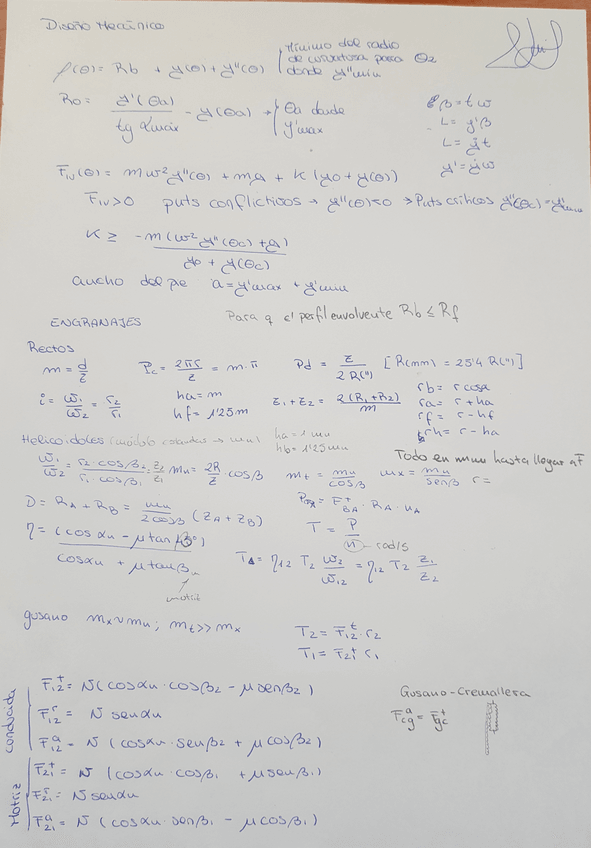 Diseño Mecánico
ρ(θ) = Rb + y(θ) + y''(θ) | Mínimo del radio de curvatura para θ2 donde y''min
Ro = y'(θa) / tg αmáx - y(θa) → θa donde y'max
β = t w
L = y'β
L = ẏt
y' = ẏ/w
F̄IV(θ) = m w² y''(θ) + mg + K (y0 + y(θ))
FIV > 0 puts conflictivos → y''(θ) < 0 → Puts críticos y''(θc) = y''min
K ≥ -m(w² y''(θc) + g) / y0 + y(θc)
ancho del pie a = y'max + y'min
ENGRANAJES
Para q el perfil envolvente Rb ≤ Rf
Rectos
m = d/z
Pc = 2πr/z = m·π
Pd = z / 2R(") [R(mm) = 25'4 R(")]
i = w̄1/w̄2 = r2/r1
ha = m
hf = 1'25m
z1 + z2 = 2(R1+R2)/m
rb = r cosα
ra = r + ha
rf = r - hf
rh = r - ha
Helicoidales
ha = 1 mn
hb = 1'25mn
Todo en mm hasta llegar a F̄
w̄1/w̄2 = r2·cosβ2 / r1·cosβ1 = z2/z1
mn = 2R/z · cosβ
mt = mn/cosβ
mx = mn/senβ
r =
D = RA + RB = mn / 2cosβ (ZA + ZB)
F̄tBA · RA · nA
η = (cosαn - μtanβ) / cosαn + μtanβ
motriz
T = P / n – rad/s
T1 = η12 T2 w̄2/w̄12 = η12 T2 z1/z2
gusano mx ∼ mn; mt >> mx
T2 = F̄t12 · r2
T1 = F̄t21 r1
Conducida
F̄t12 = N(cosαn·cosβ2 - μsenβ2)
F̄r12 = N senαn
F̄a12 = N (cosαn·senβ2 + μcosβ2)
Gusano-Cremallera
F̄acg = F̄tgc
Motriz
F̄t21 = N (cosαn·cosβ1 + μsenβ1)
F̄r21 = N senαn
F̄a21 = N (cosαn·senβ1 - μcosβ1)